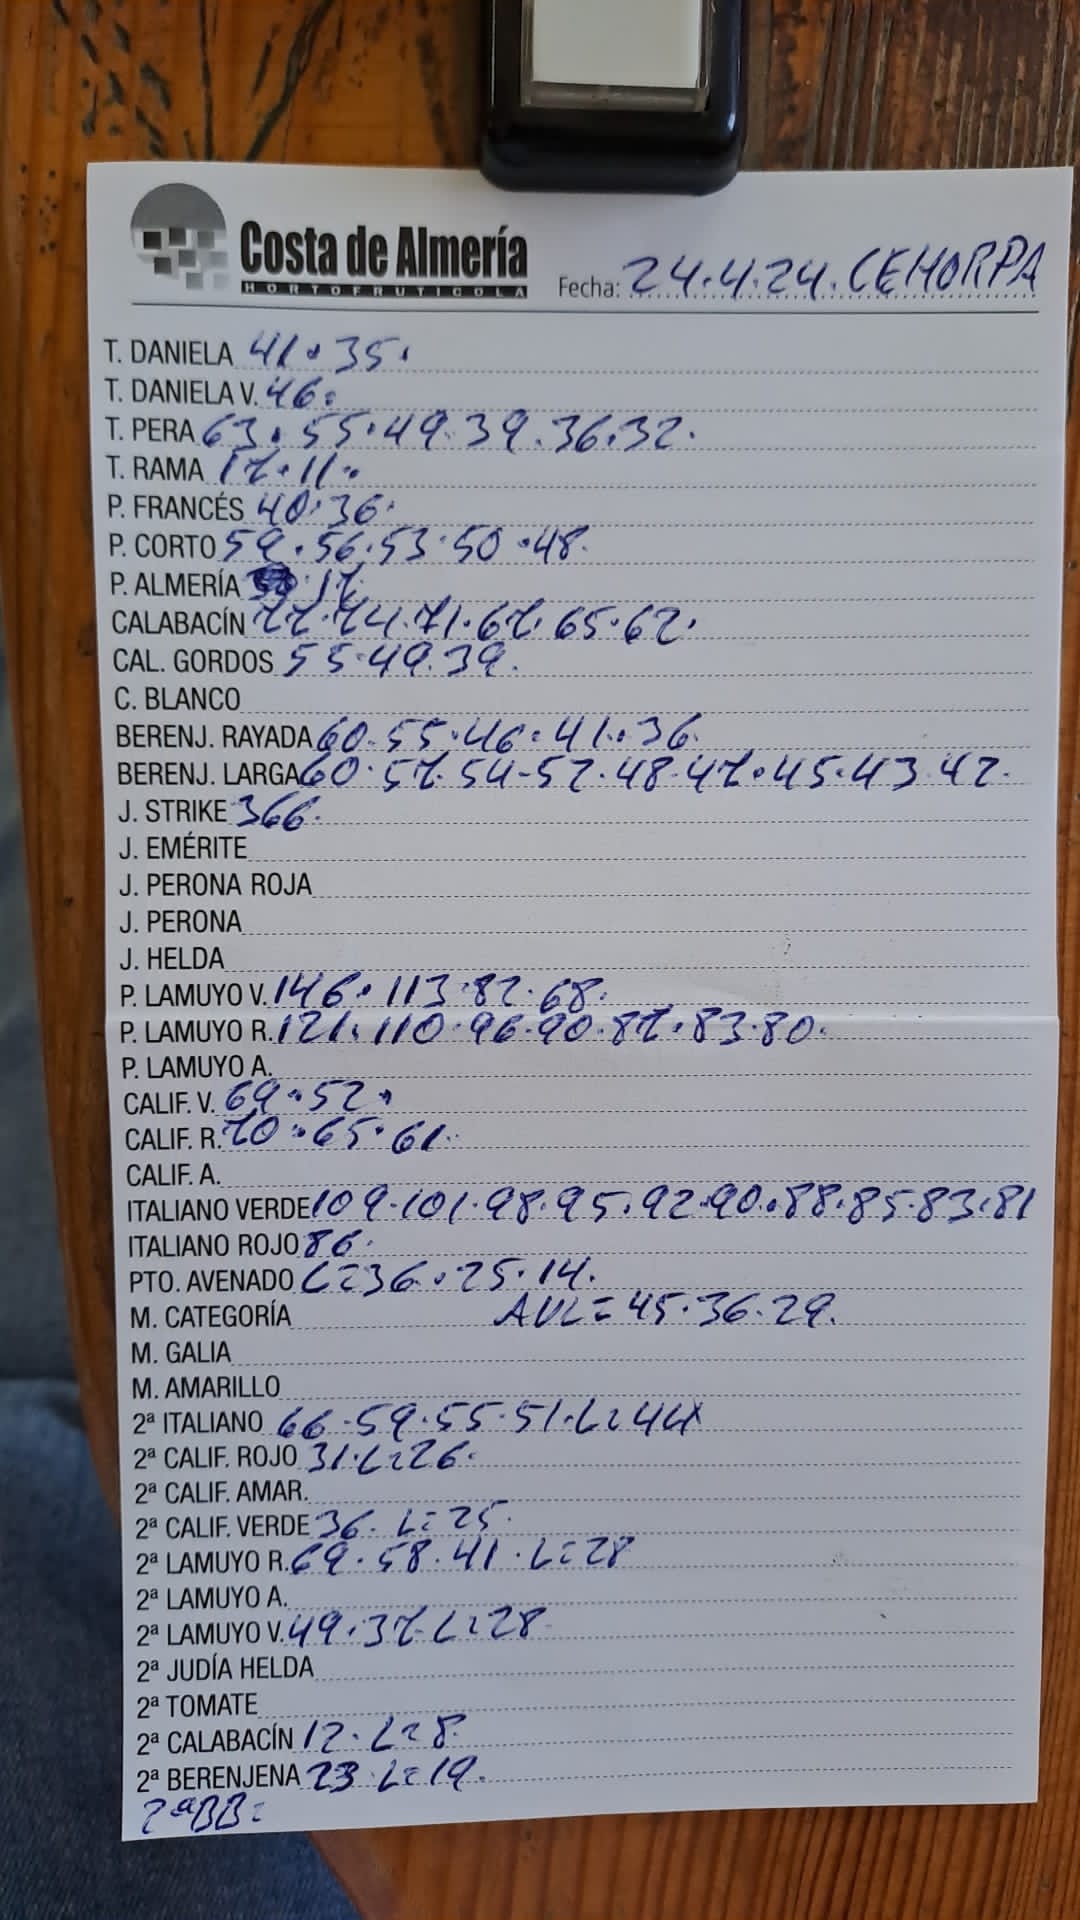 Costa de Almería
HORTOFRUTICOLA
Fecha: 24.4.24. CEHORPA
T. DANIELA 41.35.
T. DANIELA V. 46.
T. PERA 63.55.49.39.36.32.
T. RAMA 17.11.
P. FRANCÉS 40.36.
P. CORTO 59.56.53.50.48.
P. ALMERÍA 17
CALABACÍN 77.74.71.67.65.62.
CAL. GORDOS 55.49.39.
C. BLANCO
BERENJ. RAYADA 60.55.46.41.36.
BERENJ. LARGA 60.57.54-52.48.47.45.43.42.
J. STRIKE 366.
J. EMÉRITE
J. PERONA ROJA
J. PERONA
J. HELDA
P. LAMUYO V. 146.113.82.68.
P. LAMUYO R. 121.110.96.90.87.83.80.
P. LAMUYO A.
CALIF. V. 69.52.
CALIF. R. 70.65.61.
CALIF. A.
ITALIANO VERDE 109.101.98.95.92.90.88.85.83.81
ITALIANO ROJO 86.
PTO. AVENADO L=36.25.14.
M. CATEGORÍA AVL=45.36.29.
M. GALIA
M. AMARILLO
2ª ITALIANO 66.59.55.51.L=44
2ª CALIF. ROJO 31.L=26.
2ª CALIF. AMAR.
2ª CALIF. VERDE 36. L=25.
2ª LAMUYO R. 69.58.41.L=28
2ª LAMUYO A.
2ª LAMUYO V. 49.37.L=28
2ª JUDÍA HELDA
2ª TOMATE
2ª CALABACÍN 12.L=8.
2ª BERENJENA 23 L=19.
2ªBB=